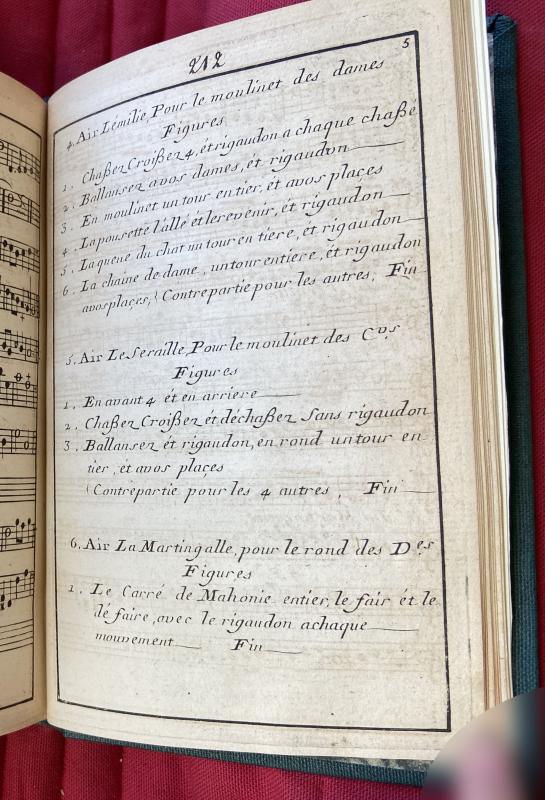 212
5
4. Air Lémilie, Pour le moulinet des dames
Figures
1. Chaßez Croißez 4, ét rigaudon a chaque chaße
2. Ballansez avos dames, ét rigaudon
3. En moulinet un tour entier, ét avos plaçes
4. La pousette l'allé ét lerevenir, ét rigaudon
5. La queue du chat un tour entiere, ét rigaudon
6. La chaine de dame, untour entiere, ét rigaudon
avos plaçes, Contrepartie pour les autres, Fin
5. Air LeSeraille, Pour le moulinet des Crs
Figures
1. En avant 4 ét en arriere
2. Chaßez Croißez ét déchaßez Sans rigaudon
3. Ballansez ét rigaudon, en rond untour en
tier, ét avos plaçes
Contrepartie pour les 4 autres, Fin
6. Air La Martingalle, pour le rond des Des
Figures
1. Le Carré de Mahonie entier, le fair ét le
dé faire, avec le rigaudon achaque
mouvement Fin